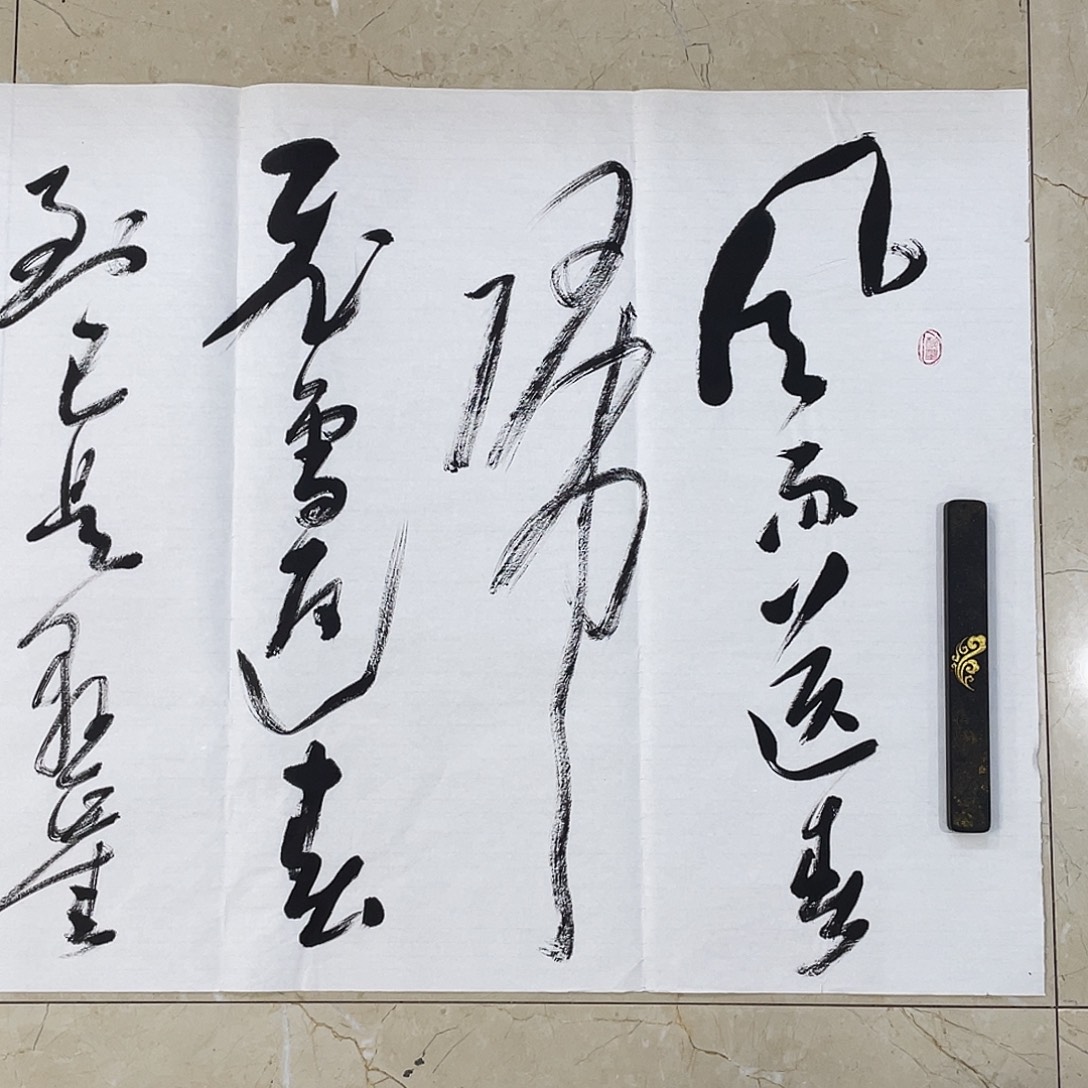 风雨送春
归
飞雪迎春
到已是悬崖